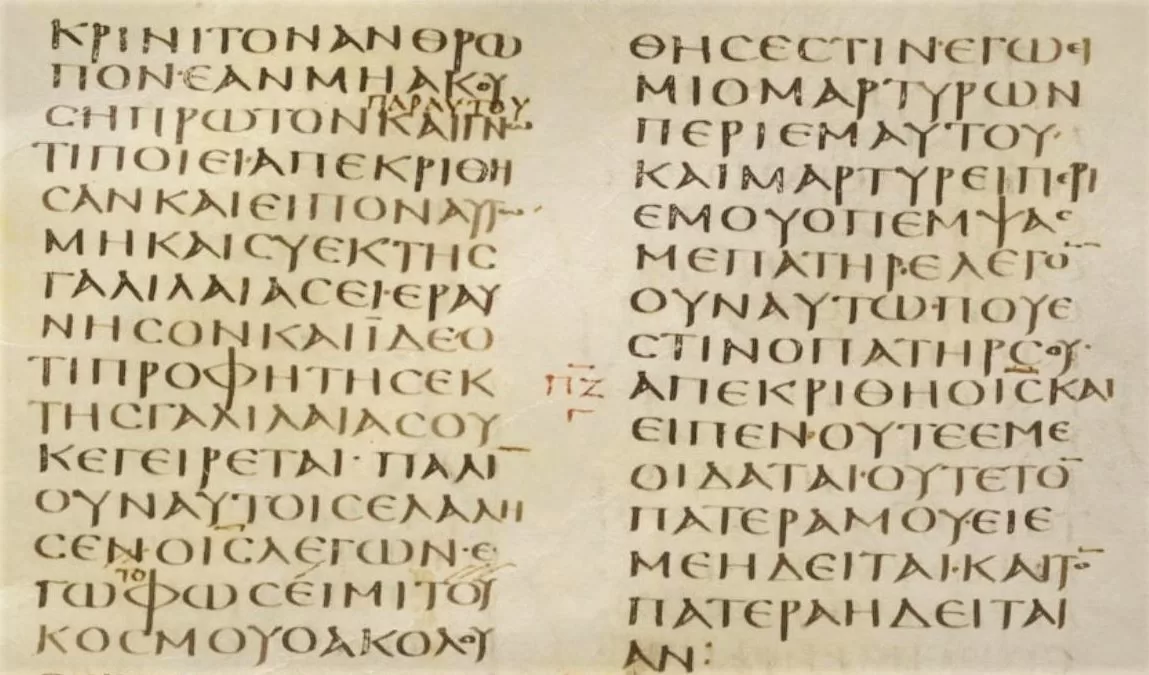 ΚΡΙΝΙΤΟΝΑΝΘΡΩ
ΠΟΝ·ΕΑΝΜΗΑΚΟΥ
ΠΑΡΑΥΤΟΥ
ϹΗΠΡΩΤΟΝΚΑΙΓΝΩ
ΤΙΠΟΙΕΙ·ΑΠΕΚΡΙΘΗ
ϹΑΝΚΑΙΕΙΠΟΝΑΥΤΩ·
ΜΗΚΑΙϹΥΕΚΤΗϹ
ΓΑΛΙΛΑΙΑϹΕΙ·ΕΡΑΥ
ΝΗϹΟΝΚΑΙΪΔΕΟ
ΤΙΠΡΟΦΗΤΗϹΕΚ
ΤΗϹΓΑΛΙΛΑΙΑϹΟΥ
ΚΕΓΕΙΡΕΤΑΙ· ΠΑΛΙ̅
ΟΥΝΑΥΤΟΙϹΕΛΑΛΗ
ϹΕΝ·ΟΙ̅Ϲ̅ΛΕΓΩΝ·Ε
ΤΟ
ΓΩΦΩϹΕΙΜΙΤΟΥ
ΚΟϹΜΟΥΟΑΚΟΛΟΥ
ΘΗϹΕϹΤΙΝ·ΕΓΩΕΙ
ΜΙΟΜΑΡΤΥΡΩΝ
ΠΕΡΙΕΜΑΥΤΟΥ·
ΚΑΙΜΑΡΤΥΡΕΙΠΕΡΙ
ΕΜΟΥΟΠΕΜΨΑϹ
ΜΕΠΑΤΗΡ·ΕΛΕΓΟ̅
ΟΥΝΑΥΤΩ·ΠΟΥΕ
ϹΤΙΝΟΠΑΤΗΡϹΟΥ·
Π̅Ζ
Γ̅
ΑΠΕΚΡΙΘΗΟΙ̅Ϲ̅ΚΑΙ
ΕΙΠΕΝ·ΟΥΤΕΕΜΕ
ΟΙΔΑΤΑΙ·ΟΥΤΕΤΟ̅
ΠΑΤΕΡΑΜΟΥ·ΕΙΕ
ΜΕΗΔΕΙΤΑΙ·ΚΑΙΤΟ̅
ΠΑΤΕΡΑΗΔΕΙΤΑΙ
ΑΝ: